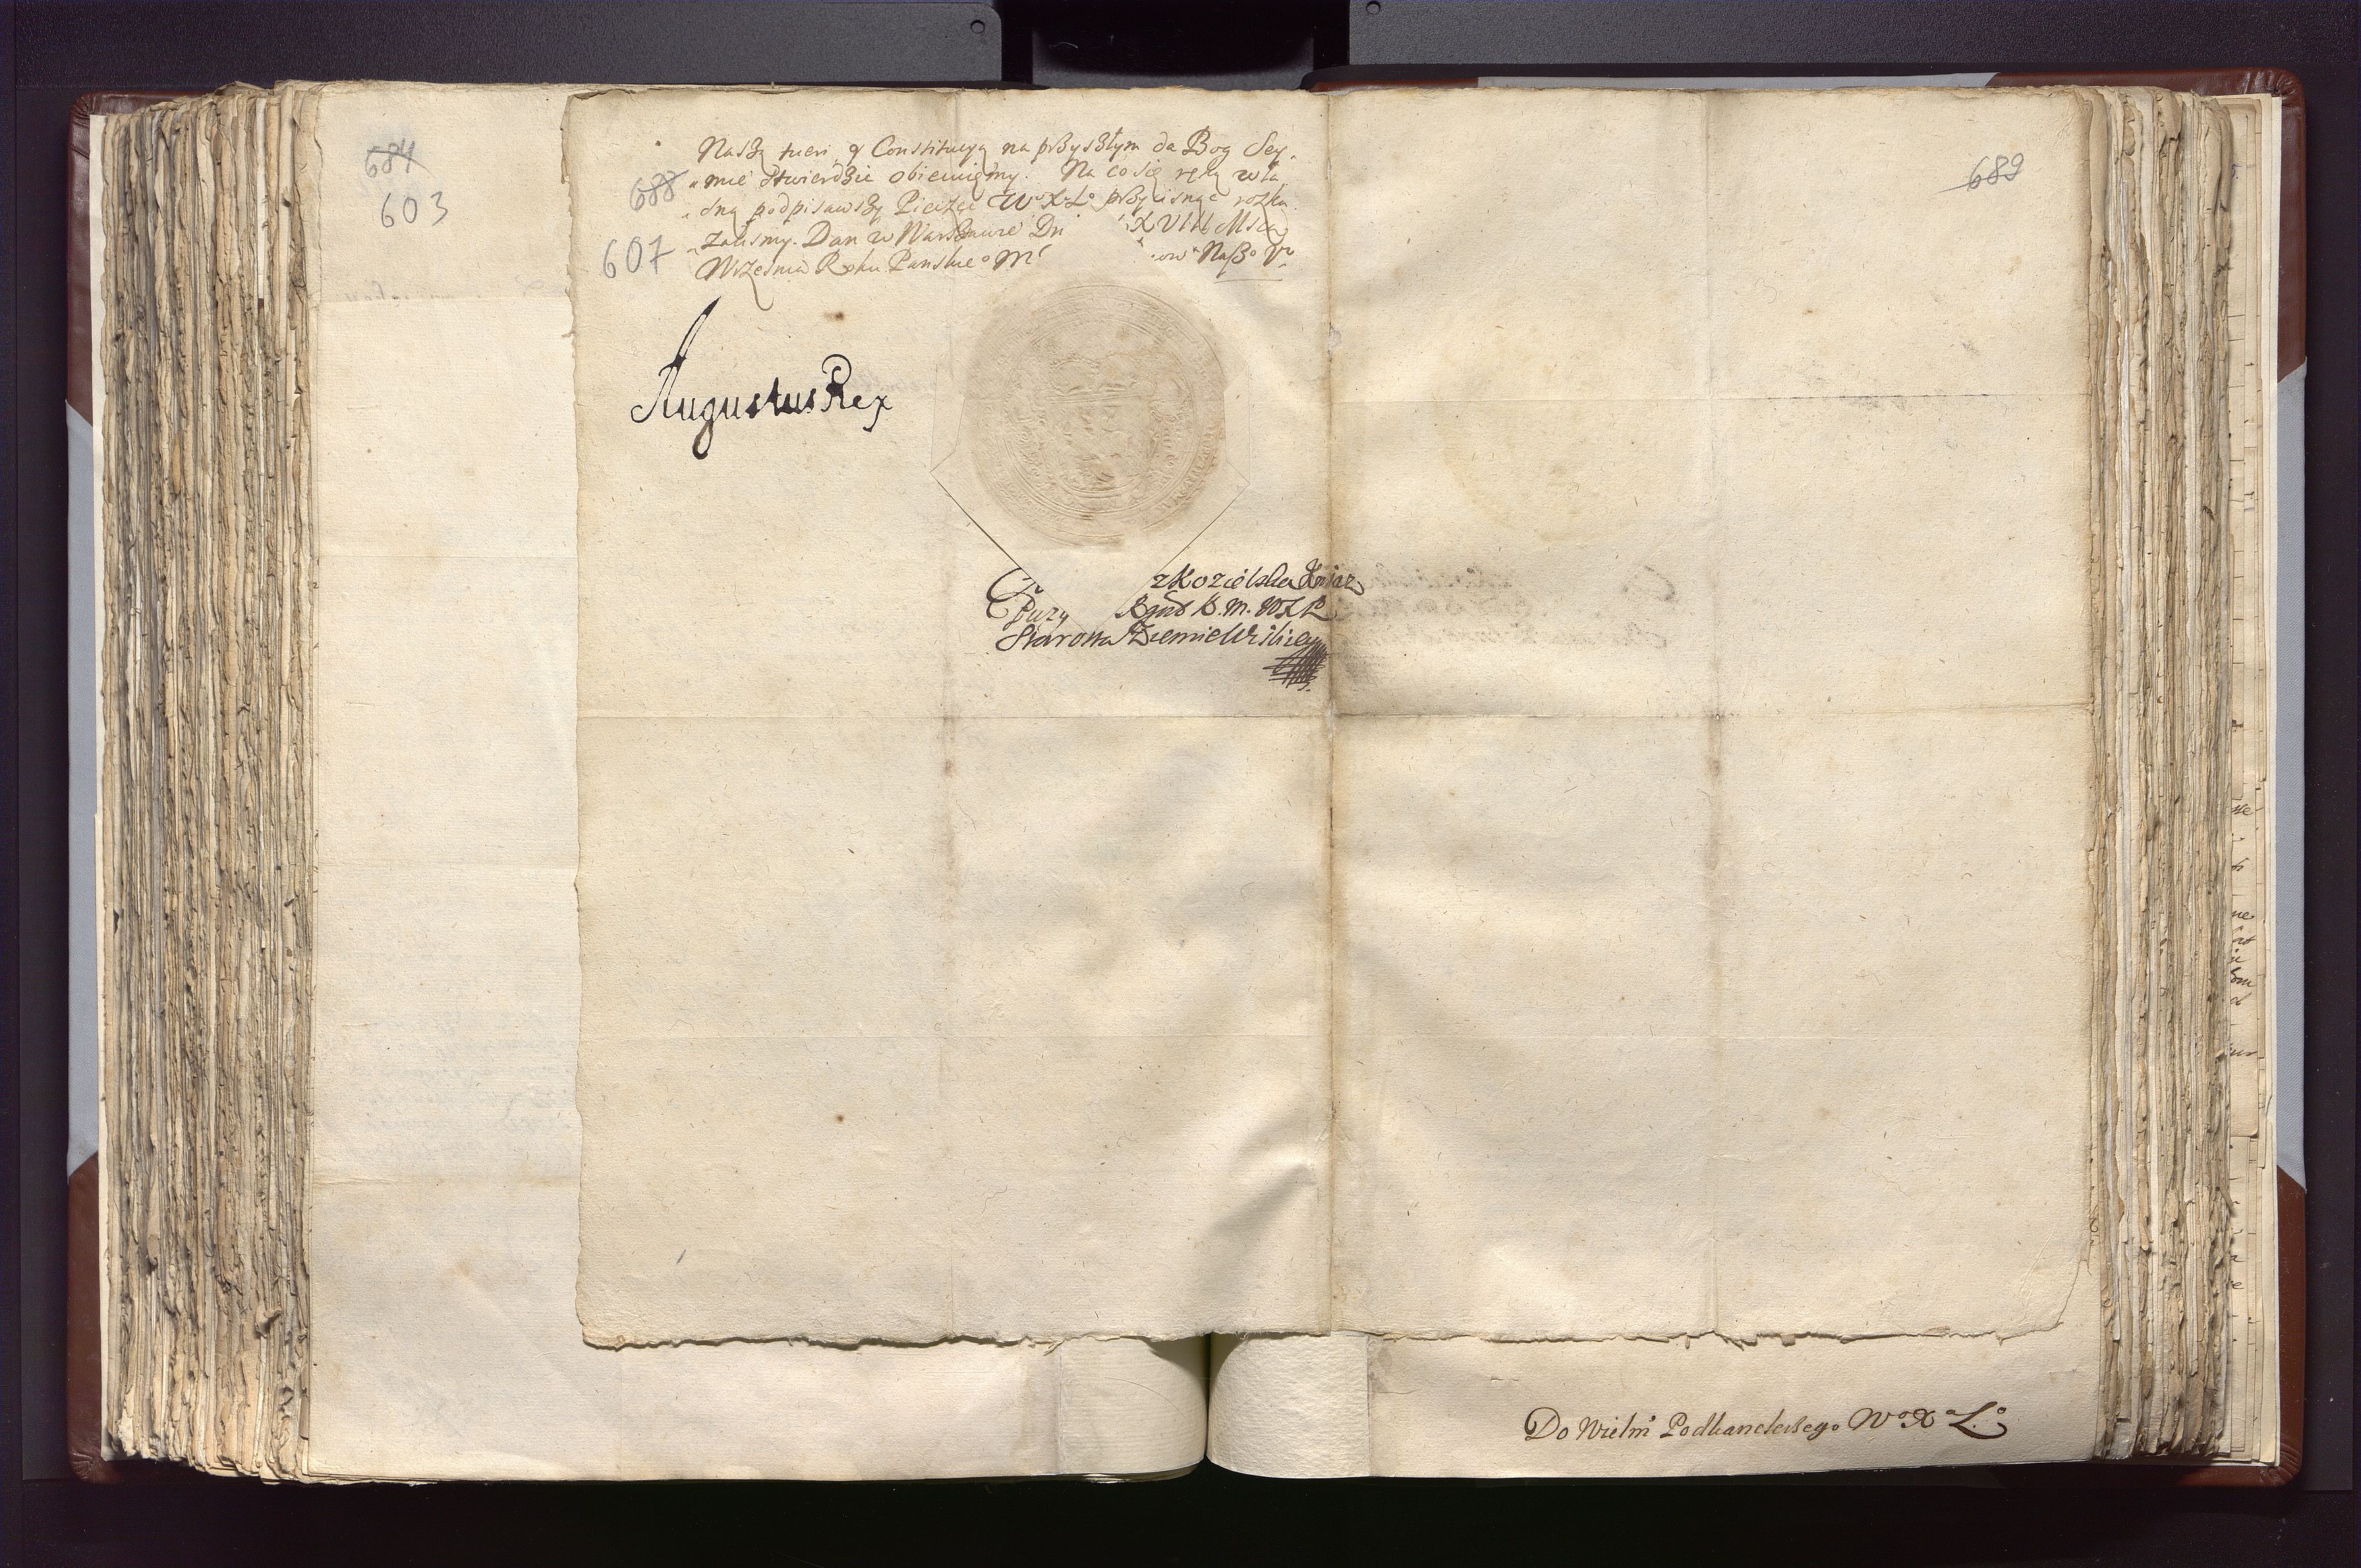 684
603
688
607
689
Naszą tueri y Constitucyą na przyszłym da Bog Sey,
„mie stwierdzić obiecuięmy. Na co się ręką wła
„sną podpisawszy Pieczęć Wo X Lo przycisnąć rozka
„zalismy. Dan w Warszawie Dn XVIII Msca
Wrzesnia Roku Panskieo M ow Naszo
Augustus Rex
z Kozielska Kniaz
Puzy
Starosta Ziemie
Do Wielmo Podkanclerzego Wo Xa Lo